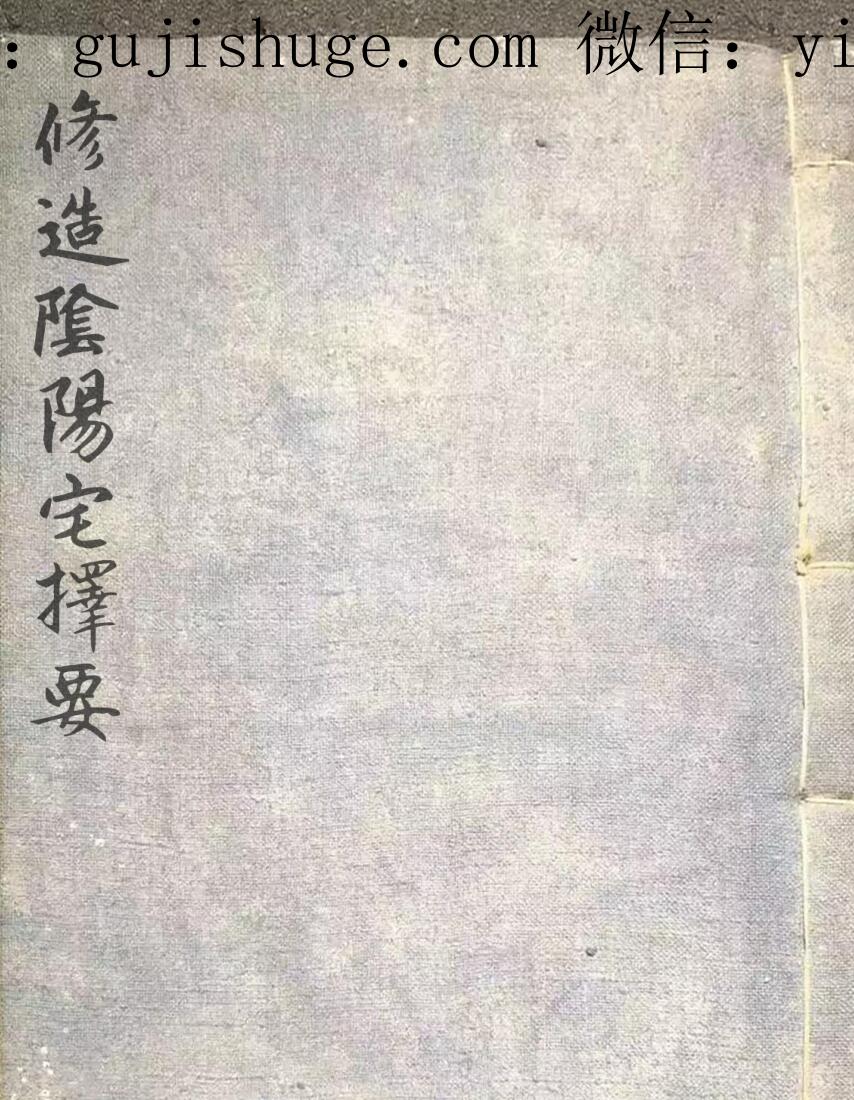 : gujishuge.com 微信: yi
修造陰陽宅擇要